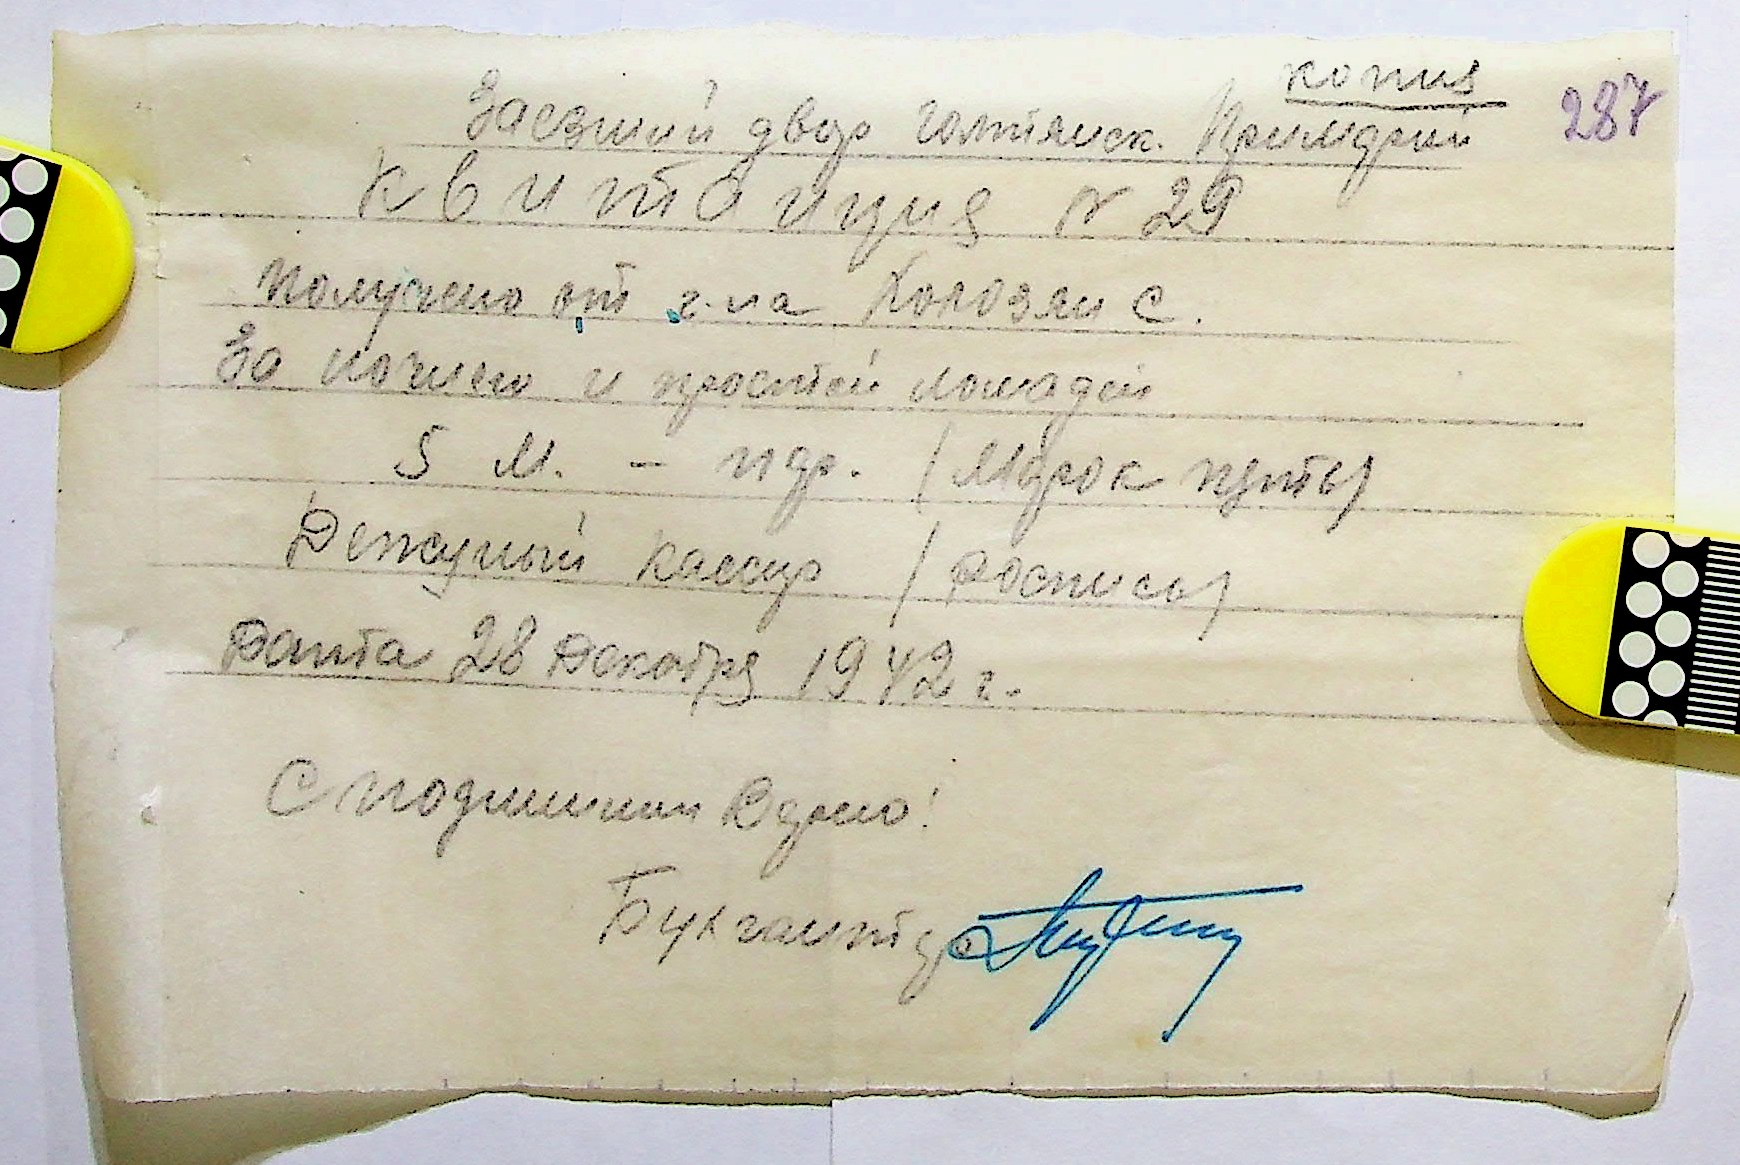 копия
287
Заезжий двор Голтянск. Примэрии
Квитанция № 29
Получено от г-на Колозян С.
За ночлег и простой лошадей
5 м. – пф. (Марок пять)
Дежурный кассир (роспись)
Данта 28 Декабря 1942 г.
С подлинным верно!
Бухгалтер